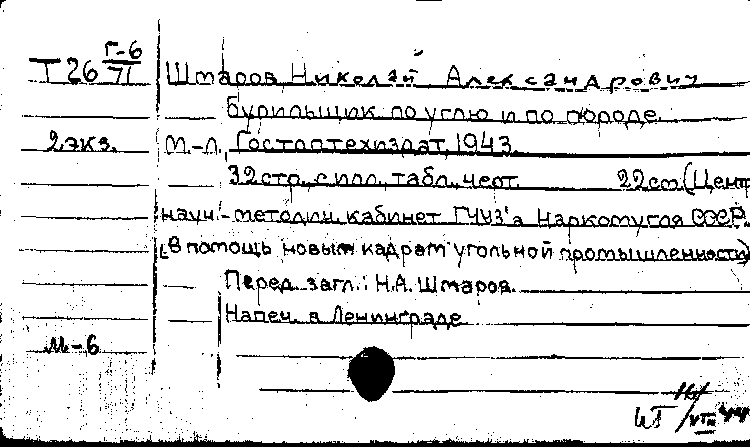 Г-6
Т 26 71 Штаров, Николай Александрович
Бурильщик по углю и по породе.
2 экз. М.-Л., Гостоптехиздат, 1943.
32 стр., с илл., табл., черт. 22 см. (Центр
науч.-методич. кабинет ГУУЗ'а Наркомугля СССР.
(В помощь новым кадрам угольной промышленности)
Перед загл.: Н.А. Штаров.
Напеч. в Ленинграде
М-6